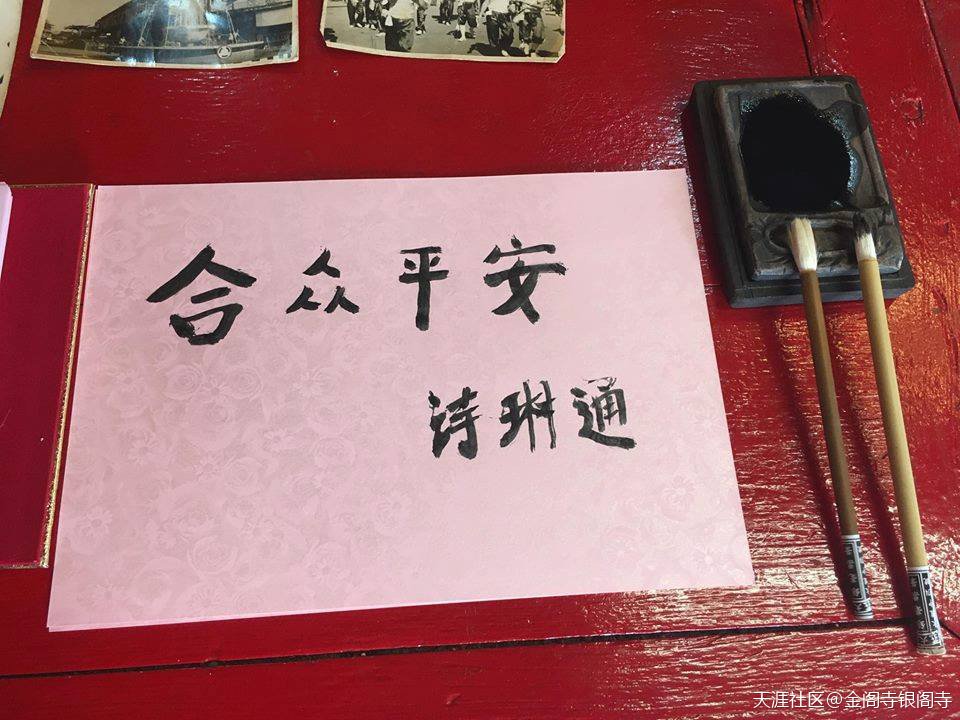 合众平安
诗琳通
天涯社区@金阁寺银阁寺